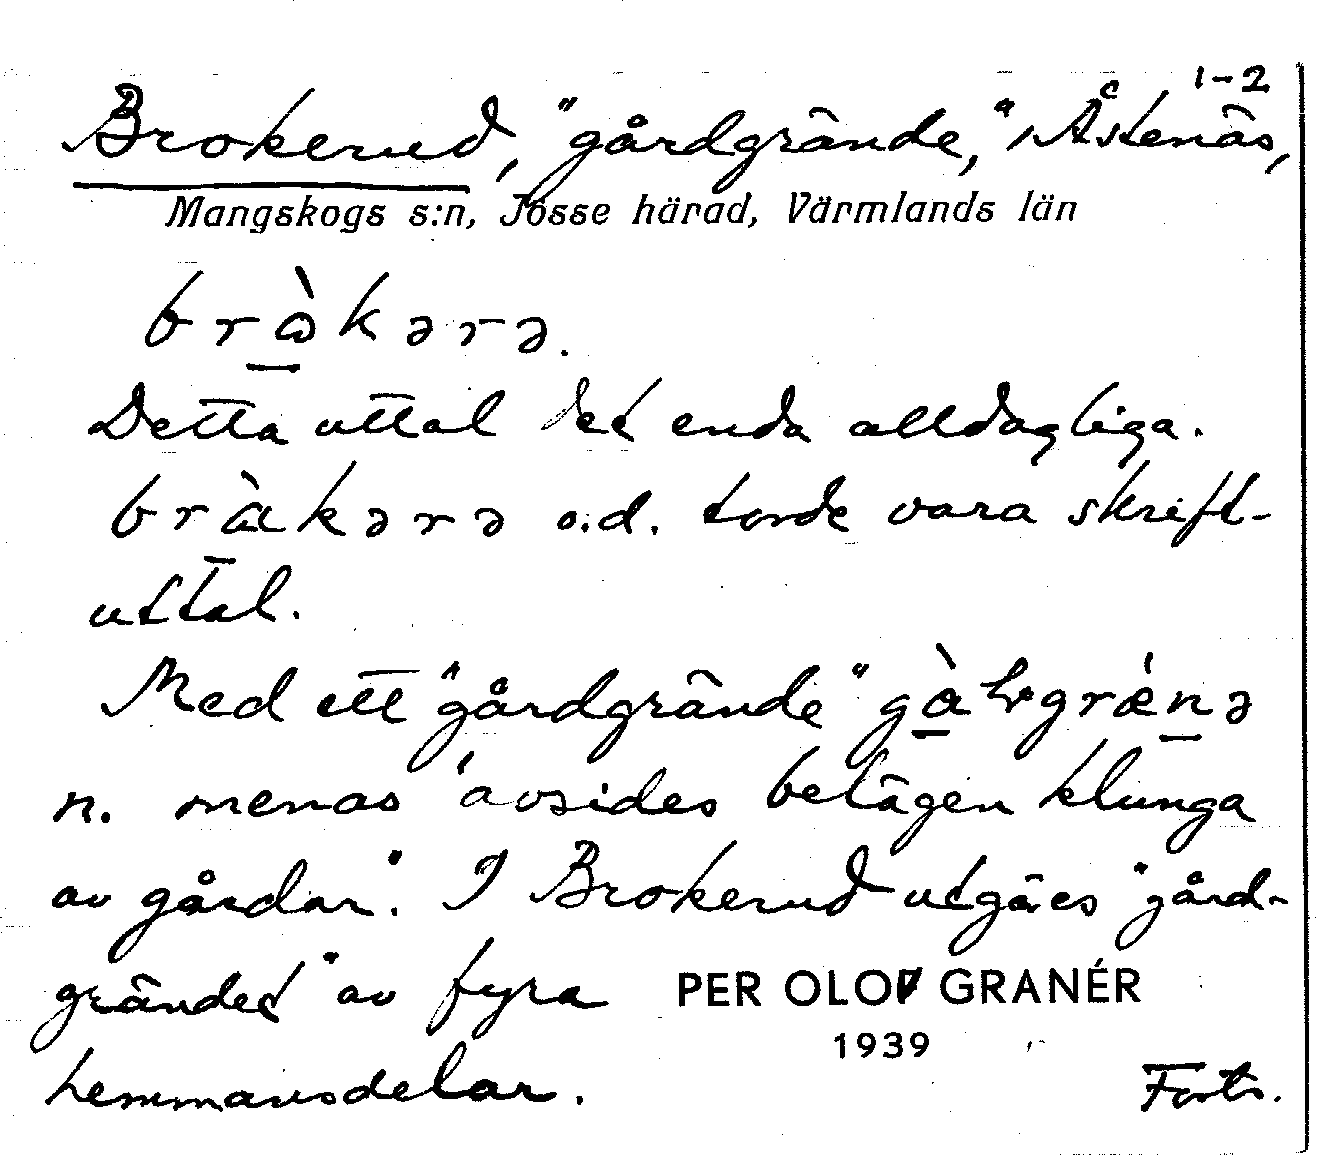 1-2
Brokerud, "gårdgrände," i Åstenäs,
Mangskogs s:n, Jösse härad, Värmlands län
bràkərə.
Detta uttal det enda alldagliga.
bràkərə o.d. torde vara skrift-
uttal.
Med ett "gårdgrände"
n. menas "avsides belägen klunga
av gårdar". I Brokerud utgöres "gård-
grändet" av fyra
PER OLOV GRANÉR
1939
hemmansdelar.
Forts.